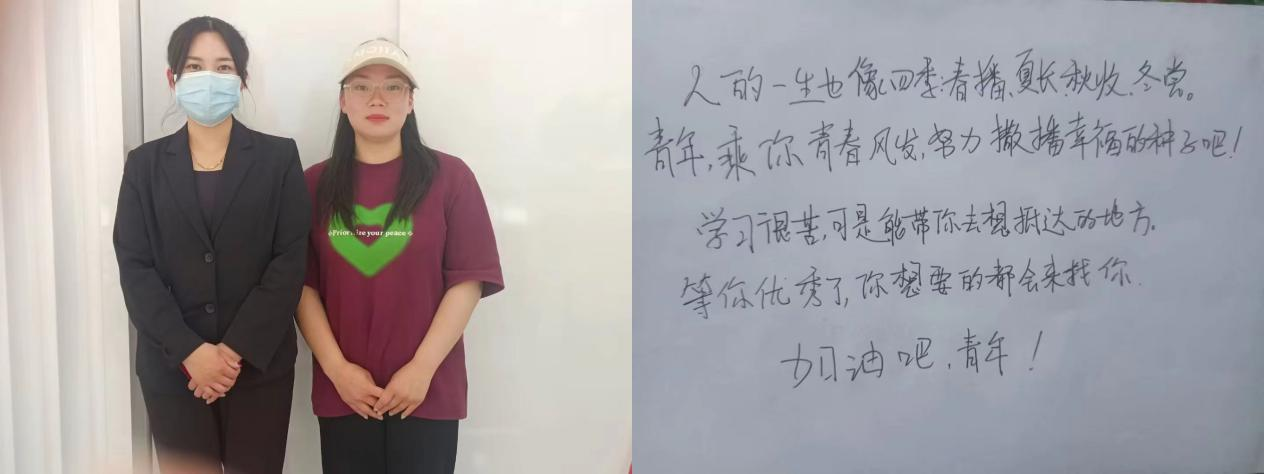 Prioritize your peace
人的一生也像四季:春播、夏长、秋收、冬尝。
青年,乘你青春风发,努力撒播幸福的种子吧!
学习很苦,可是能带你去想抵达的地方。
等你优秀了,你想要的都会来找你.
加油吧,青年!